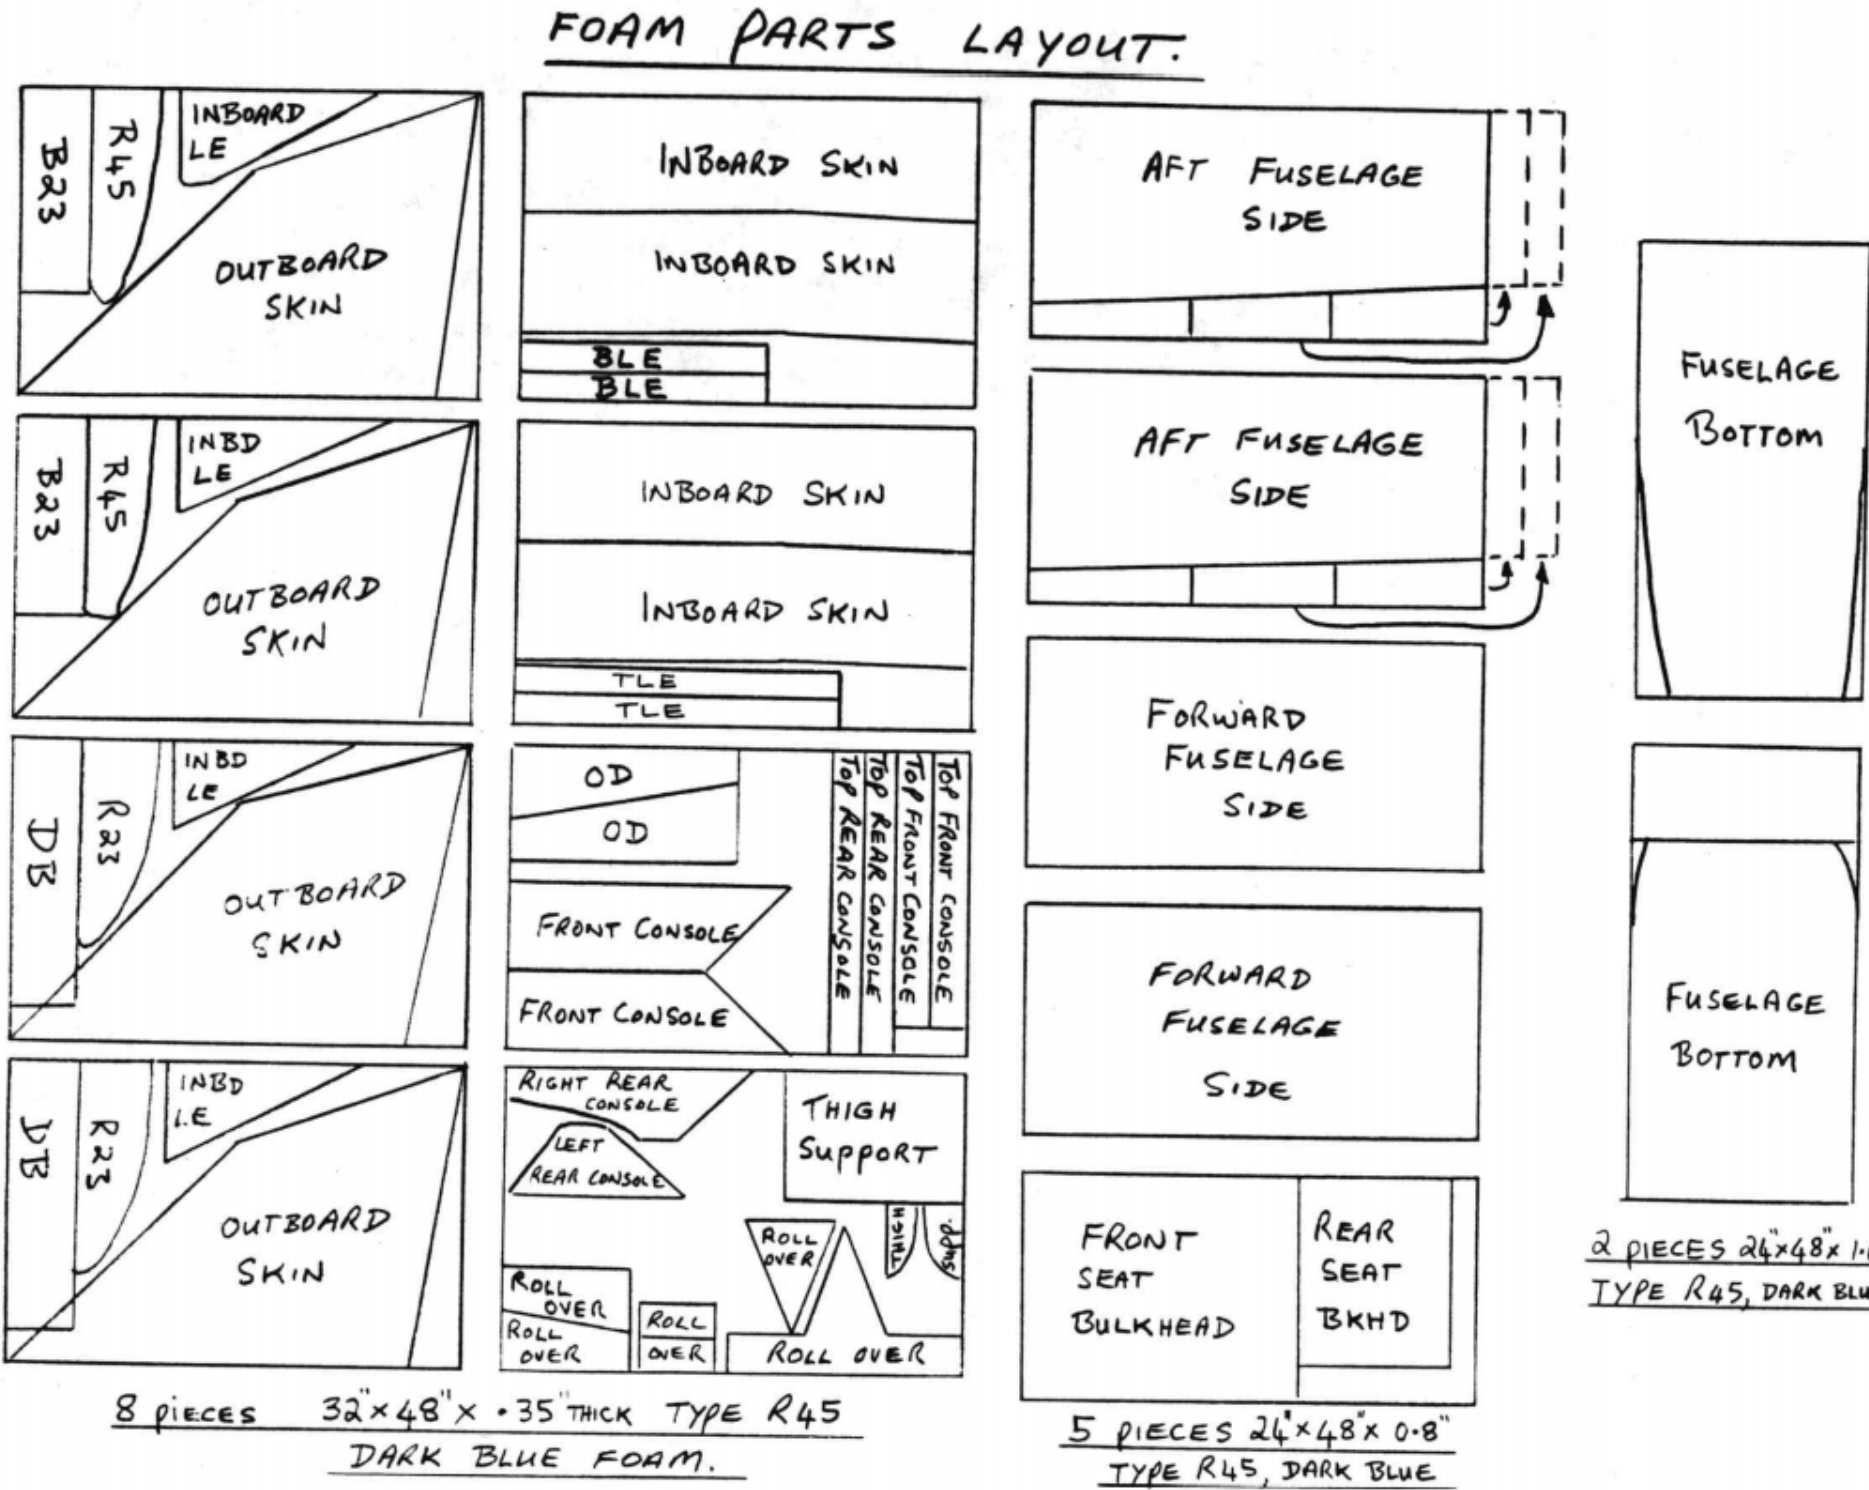 FOAM PARTS LAYOUT.
B23
R45
INBOARD
LE
OUTBOARD
SKIN
B23
R45
INBD
LE
OUTBOARD
SKIN
DB
R23
INBD
LE
OUTBOARD
SKIN
DB
R23
INBD
LE
OUTBOARD
SKIN
INBOARD SKIN
INBOARD SKIN
BLE
BLE
INBOARD SKIN
INBOARD SKIN
TLE
TLE
OD
OD
FRONT CONSOLE
FRONT CONSOLE
TOP REAR CONSOLE
TOP REAR CONSOLE
TOP FRONT CONSOLE
TOP FRONT CONSOLE
RIGHT REAR
CONSOLE
LEFT
REAR CONSOLE
THIGH
SUPPORT
THIGH
SUPP.
ROLL
OVER
ROLL
OVER
ROLL
OVER
ROLL
OVER
ROLL OVER
8 PIECES 32"x48"x .35" THICK TYPE R45
DARK BLUE FOAM.
AFT FUSELAGE
SIDE
AFT FUSELAGE
SIDE
FORWARD
FUSELAGE
SIDE
FORWARD
FUSELAGE
SIDE
FRONT
SEAT
BULKHEAD
REAR
SEAT
BKHD
5 PIECES 24"x48"x 0.8"
TYPE R45, DARK BLUE
FUSELAGE
BOTTOM
FUSELAGE
BOTTOM
2 PIECES 24"x48"x
TYPE R45, DARK